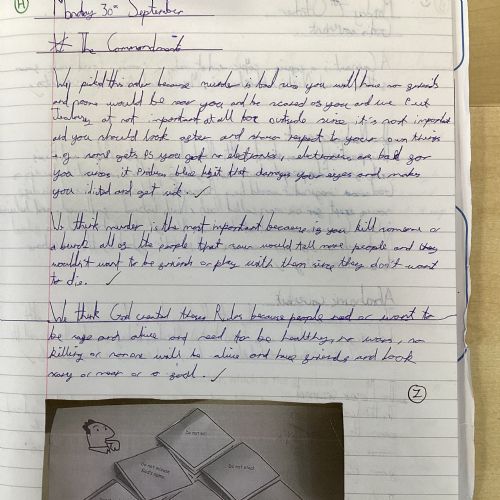 H
Monday 30th September
The Commandments
We picked this order because murder is bad you will have no friends
and noone would be near you and be scared of you and we Put
Jealousy at not important at all box outside since it's not important
and you should look after and show respect to your own things
e.g. you got no electronics, electronics are bad for
you it Produces blue light that damages your eyes and makes
you and get sick. ✓
We think murder is the most important because if you kill someone or
a bunch all of the people that saw would tell more people and they
wouldn't want to be friends or play with them since they don't want
to die. ✓
We think God created these Rules because people need or want to
be safe and alive and need to be healthy, no wars, no
killing or noone will be alive and have friends and look
or or a ✓
I
Do not kill
Do not misuse
God's name
Do not steal